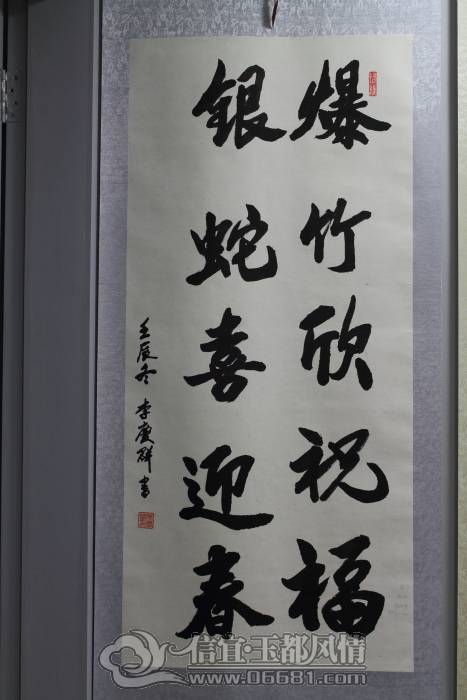 爆竹欣祝福
銀蛇喜迎春
壬辰冬 李慶群書
信宜·玉都风情
www.06681.com